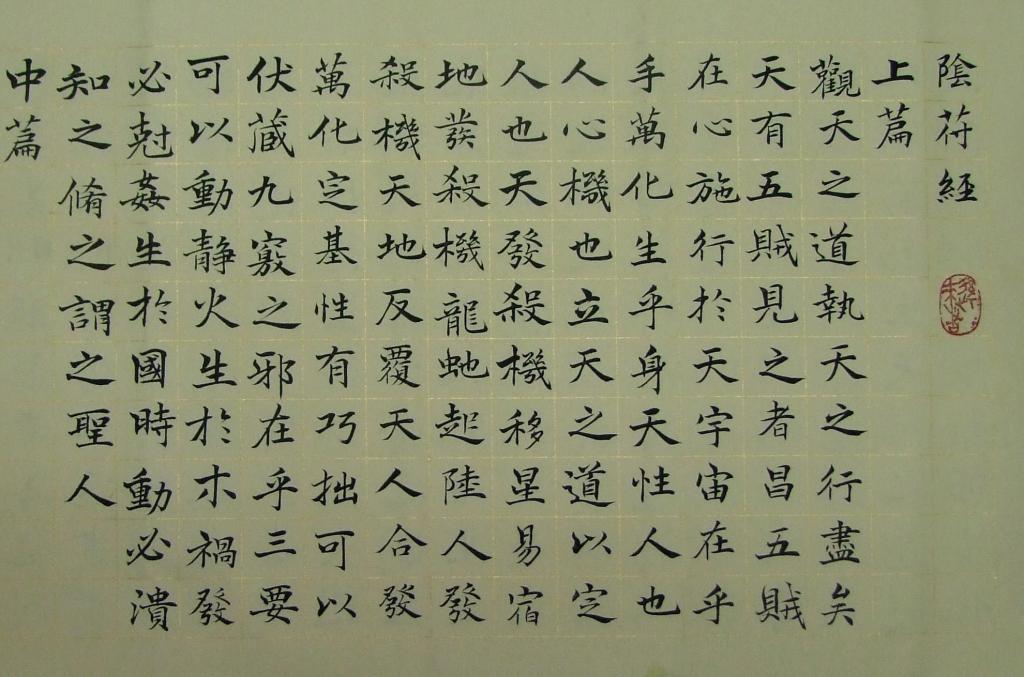 陰符經
上篇
觀天之道執天之行盡矣
天有五賊見之者昌五賊
在心施行於天宇宙在乎
手萬化生乎身天性人也
人心機也立天之道以定
人也天發殺機移星易宿
地發殺機龍虵起陸人發
殺機天地反覆天人合發
萬化定基性有巧拙可以
伏藏九竅之邪在乎三要
可以動靜火生於木禍發
必剋姦生於國時動必潰
知之脩之謂之聖人
中篇